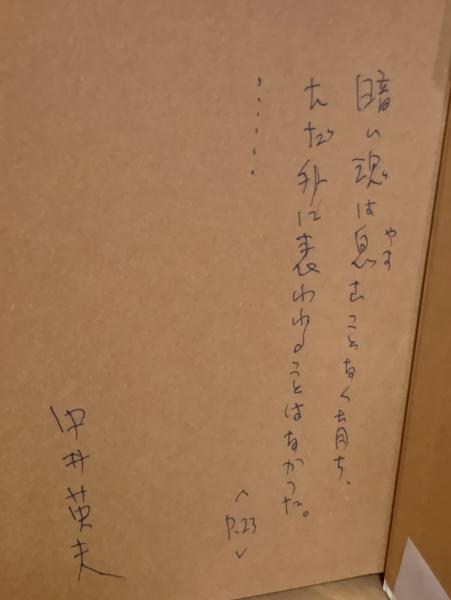 暗い魂は息(やす)むことなく育ち、
ただ外に表われることはなかった。
……
<P.23>
中井英夫